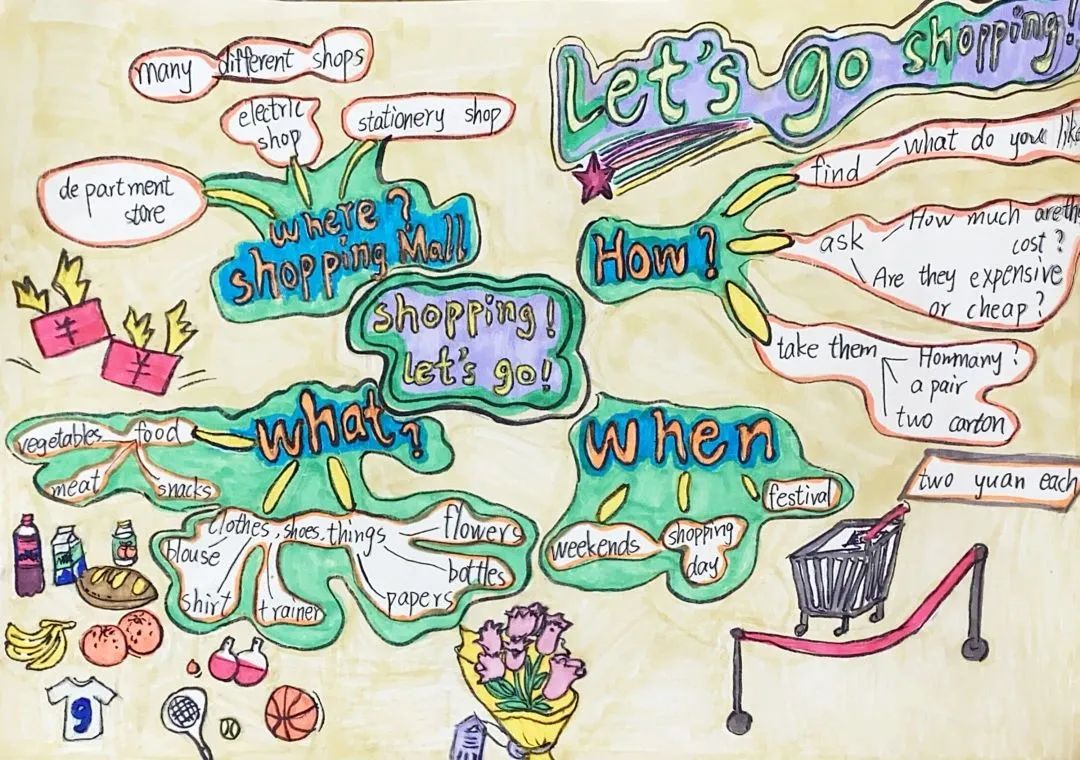 Let's go shopping!
many different shops
electric
shop
stationery shop
department
store
where?
shopping Mall
shopping!
let's go!
How?
find
what do you like
ask
How much are th
cost?
Are they expensive
or cheap?
take them
Hommany?
a pair
two carton
two yuan each
¥
¥
what?
food
vegetables
meat
snacks
clothes, shoes, things
blouse
shirt
trainer
flowers
bottles
papers
when
weekends
shopping
day
festival
9